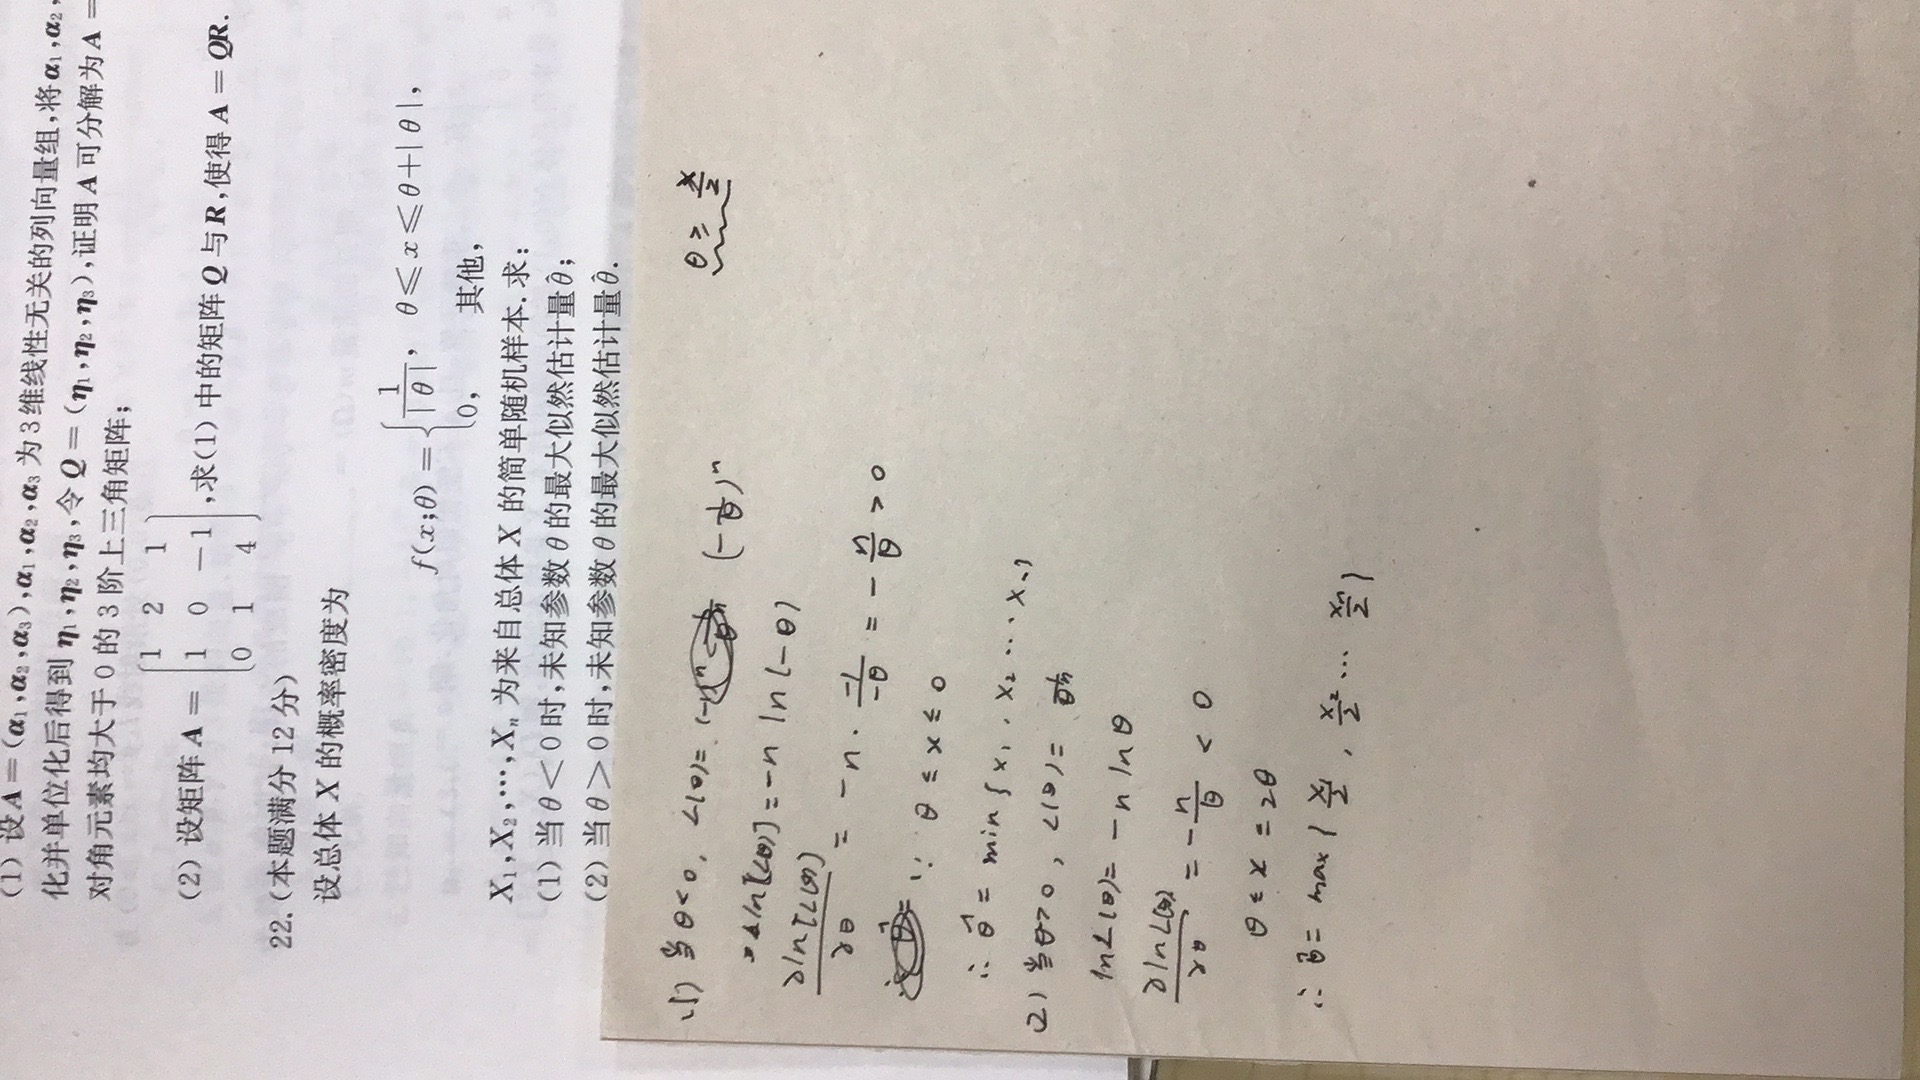 (1) 设 A = (α₁,α₂,α₃),α₁,α₂,α₃ 为 3 维线性无关的列向量组,将 α₁,α₂,
化并单位化后得到 η₁,η₂,η₃,令 Q = (η₁,η₂,η₃),证明 A 可分解为 A =
对角元素均大于 0 的 3 阶上三角矩阵;
(2) 设矩阵 A = (1 2 1; 1 0 −1; 0 1 4),求(1) 中的矩阵 Q 与 R,使得 A = QR.
22. (本题满分 12 分)
设总体 X 的概率密度为
f(x;θ) = { 1/|θ|, θ ⩽ x ⩽ θ+|θ|,
0, 其他,
X₁,X₂,⋯,Xₙ 为来自总体 X 的简单随机样本. 求:
(1) 当 θ < 0 时,未知参数 θ 的最大似然估计量 θ̂;
(2) 当 θ > 0 时,未知参数 θ 的最大似然估计量 θ̂.
(1) 当θ<0, L(θ)= (-1/θ)ⁿ
θ ≥ x/2
ln[L(θ)] = -n ln(-θ)
∂ln[L(θ)]/∂θ = -n · -1/-θ = -n/θ > 0
∵ θ ≤ x ≤ 0
∴ θ̂ = min{x₁, x₂ ... xₙ}
(2) 当θ>0, L(θ)= 1/θⁿ
lnL(θ)= -n lnθ
∂lnL(θ)/∂θ = -n/θ < 0
θ ≤ x ≤ 2θ
∴ θ̂ = max{x₁/2, x₂/2 ... xₙ/2}